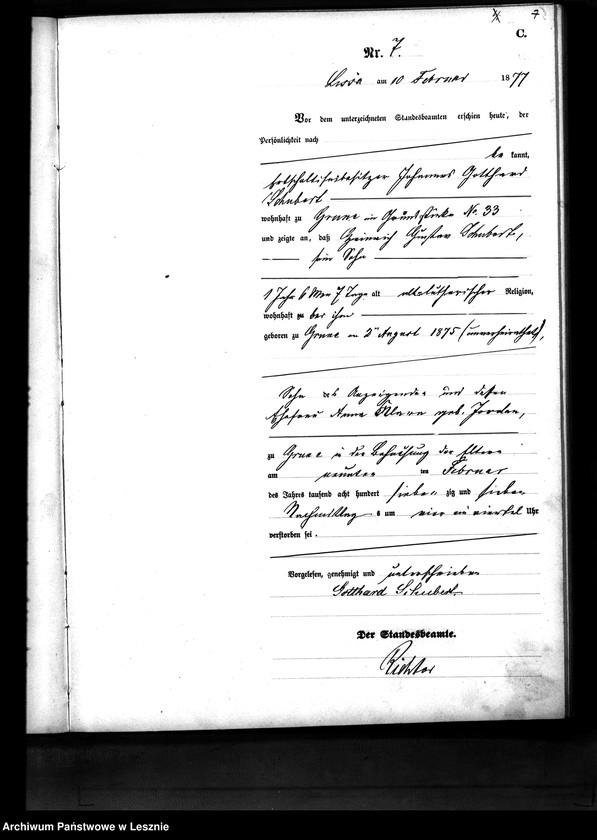 7
C.
Nr. 7.
am 10 Februar 1877
Vor dem unterzeichneten Standesbeamten erschien heute, der
Persönlichkeit nach
be kannt,
Johannes Gotthard
Schubert
wohnhaft zu Grune im Grundstücke No. 33
und zeigte an, daß Heinrich Gustav Schubert,
sein Sohn
1 Jahr 6 Mon 7 Tage alt altlutherischer Religion,
wohnhaft bei ihm
geboren zu Grune am 2ten August 1875 (unverheirathet),
Sohn des Anzeigenden und dessen
Ehefrau Anna geb. Jordan,
zu Grune in der Behausung der Eltern
am neunten ten Februar
des Jahres tausend acht hundert sieben zig und sieben
Nachmittag s um vier ein viertel Uhr
verstorben sei.
Vorgelesen, genehmigt und unterschrieben
Gotthard Schubert
Der Standesbeamte.
Richter
Archiwum Państwowe w Lesznie